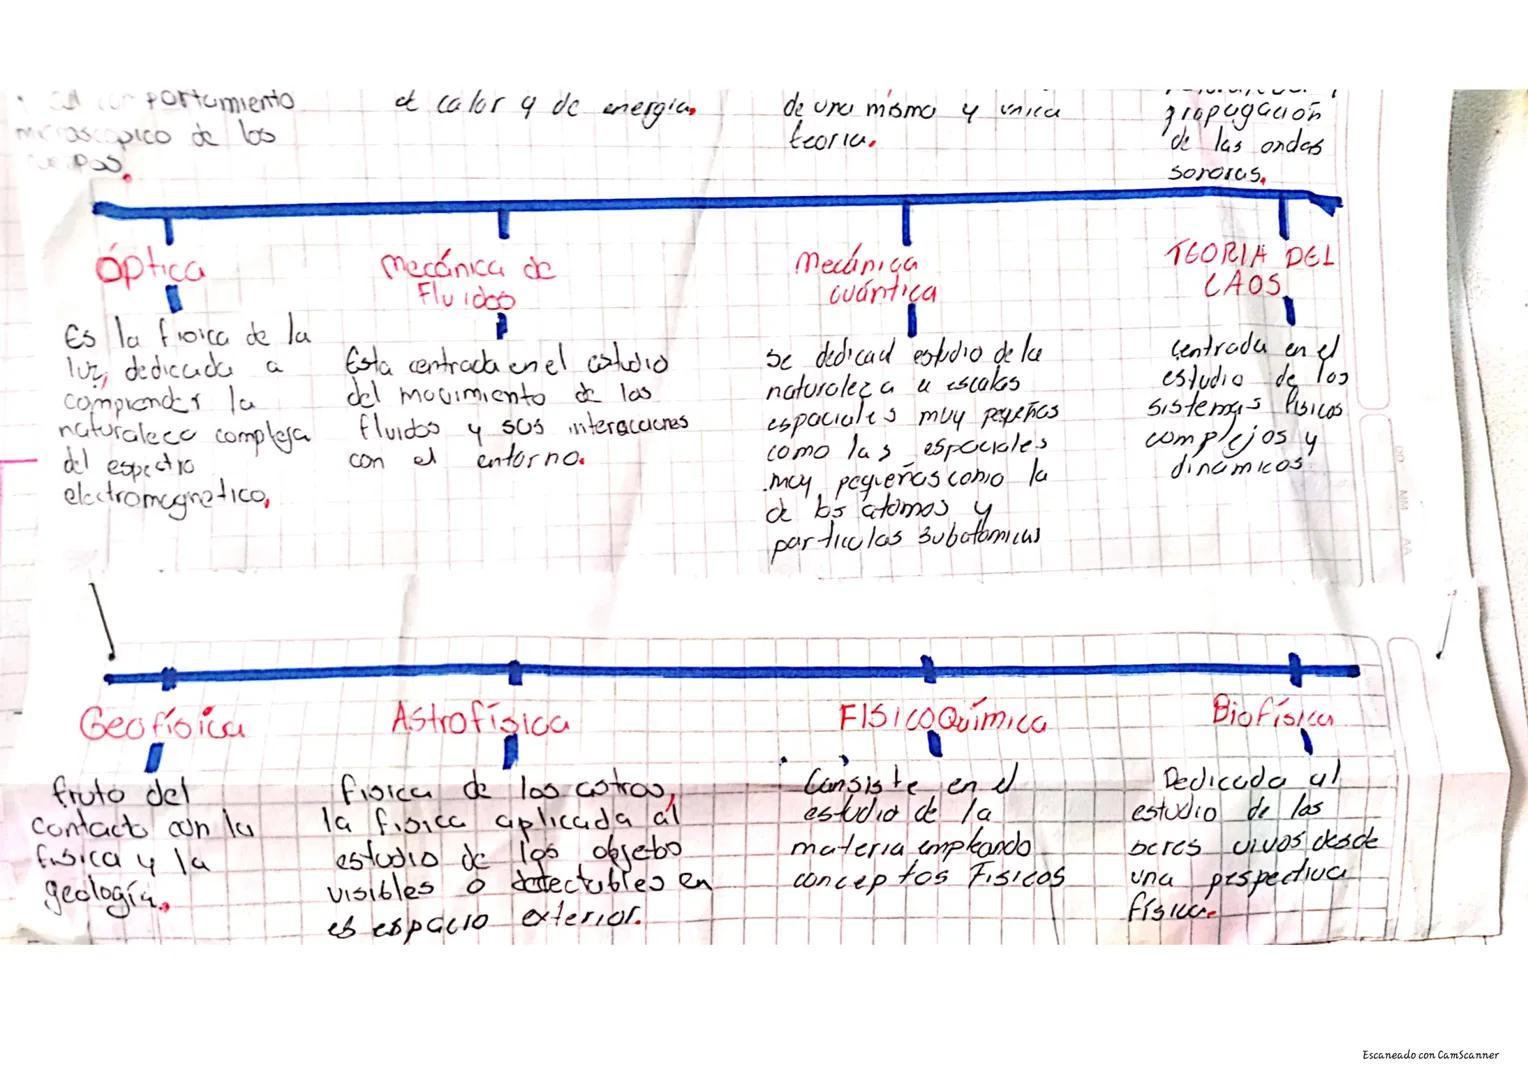 portamiento
microscopico de los
el calor y de energia.
de una misma y unica
teoria.
propagación
de las ondas
sonoras.
Óptica
Es la fisica de la
luz, dedicada a
comprender la
naturaleza compleja
del espectro
electromagnetico.
Mecánica de
Fluidos
Esta centrada en el estudio
del movimiento de los
fluidos y sus interacciones
con el entorno.
Mecániga
cuántica
se dedicad estudio de la
naturaleza a escalas
espaciales muy pequeñas
como las espaciales
muy pequeñas como la
de los atomos y
particulas subatomicas
TEORIA DEL
CAOS
Centrada en el
estudio de los
sistemas fisicos
complejos y
dinámicos
Geofísica
fruto del
contacto con la
fisica y la
geología.
Astrofísica
fisica de los astros,
la fisica aplicada al
estudio de los objebo
visibles o detectables en
es espacio exterior.
FISICOQuímica
Consiste en el
estudio de la
materia empleando
conceptos Fisicos
Biofísica
Dedicada al
estudio de los
seres vivos desde
una pespectiva
física.
Escaneado con CamScanner